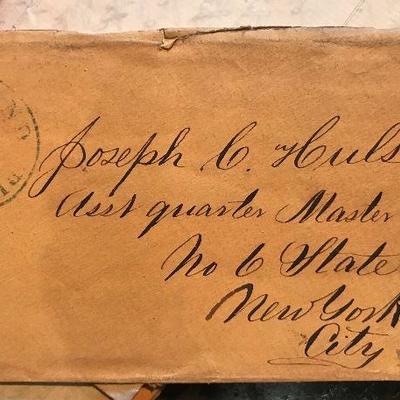 Joseph C. Huls
Asst quarter Master
No 6 State
New York
City